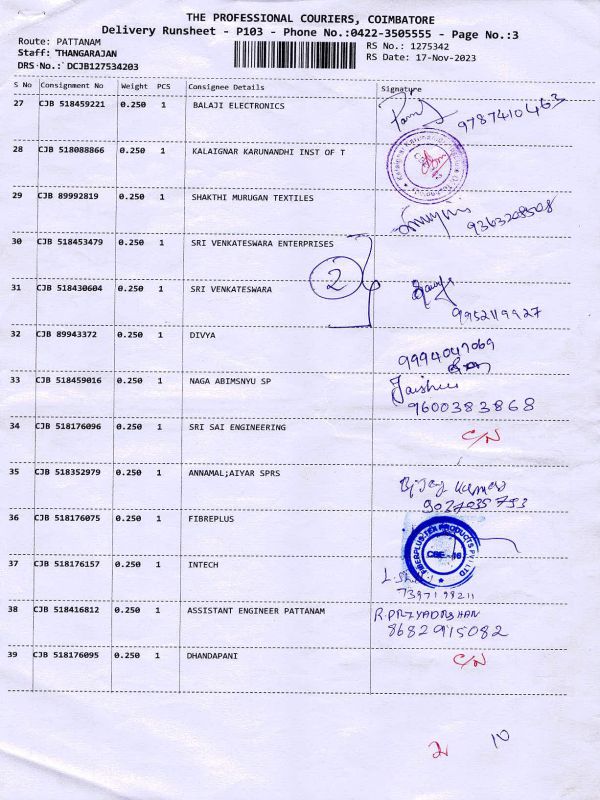 THE PROFESSIONAL COURIERS, COIMBATORE
Delivery Runsheet - P103 - Phone No.:0422-3505555 - Page No.:3
Route: PATTANAM
RS No.: 1275342
Staff: THANGARAJAN
RS Date: 17-Nov-2023
DRS No.: DCJB127534203
S No Consignment No Weight PCS Consignee Details Signature
27 CJB 518459221 0.250 1 BALAJI ELECTRONICS 9787410463
28 CJB 518088866 0.250 1 KALAIGNAR KARUNANDHI INST OF T
29 CJB 89992819 0.250 1 SHAKTHI MURUGAN TEXTILES 9363208508
30 CJB 518453479 0.250 1 SRI VENKATESWARA ENTERPRISES
2
31 CJB 518430604 0.250 1 SRI VENKATESWARA
9952119927
32 CJB 89943372 0.250 1 DIVYA 9994047069
33 CJB 518459016 0.250 1 NAGA ABIMSNYU SP
9600383868
34 CJB 518176096 0.250 1 SRI SAI ENGINEERING C/N
35 CJB 518352979 0.250 1 ANNAMAL;AIYAR SPRS
9027035753
36 CJB 518176075 0.250 1 FIBREPLUS CBE - 16
37 CJB 518176157 0.250 1 INTECH
7397198211
38 CJB 518416812 0.250 1 ASSISTANT ENGINEER PATTANAM R.PRIYADRSHAN
8682915082
39 CJB 518176095 0.250 1 DHANDAPANI C/N
2 10